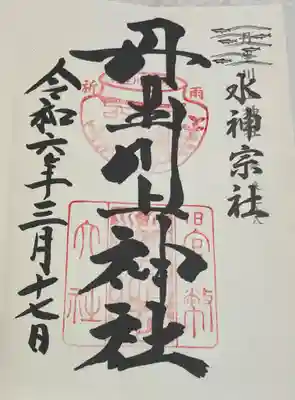 水神宗社
丹生川上神社
令和六年三月十七日
雨
祈
官幣
大社